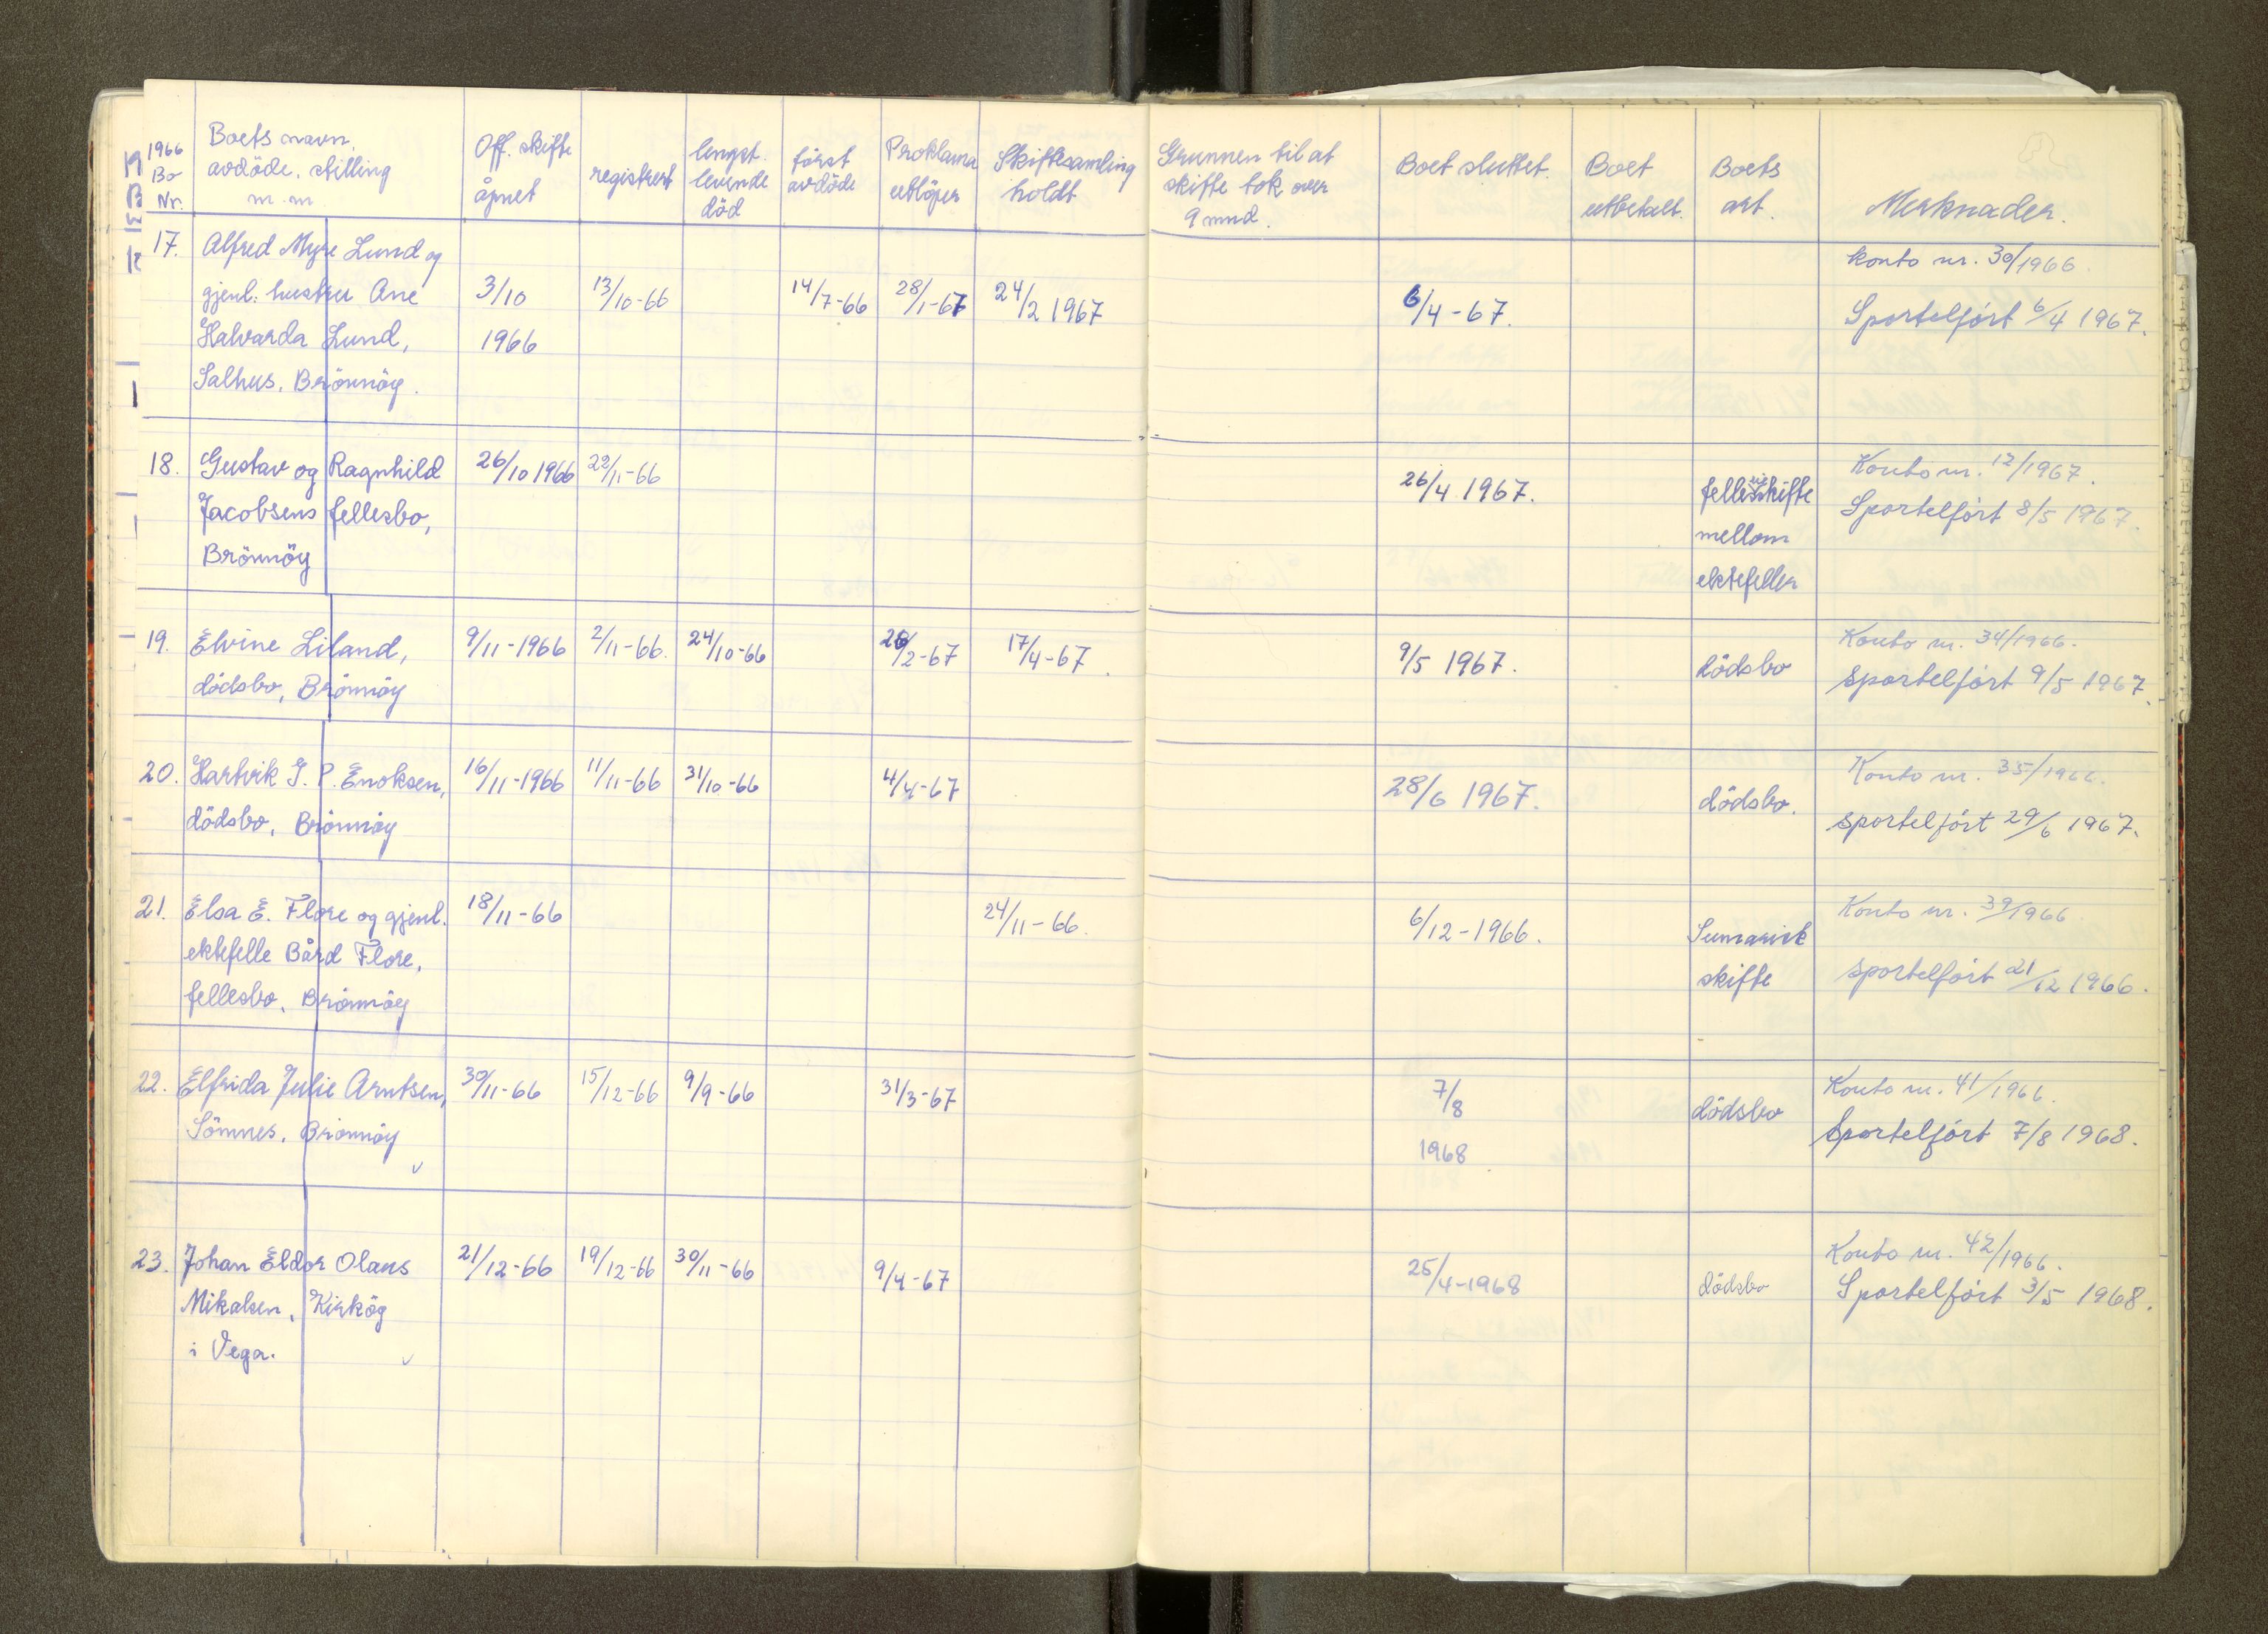 1966
Bo
Nr.
Boets navn,
avdöde, stilling
m.m.
Off. skifte
åpnet
registrert
lengst
levende
död
först
avdöde
Proklama
utlöper
Skiftesamling
holdt
Grunnen til at
skifte tok over
9 mnd.
Boet sluttet.
Boet
utbetalt.
Boets
art.
Merknader.
17. Alfred Myre Lund og
gjenl. hustru Ane
Halvarda Lund,
Salhus, Brönnöy.
3/10
1966
13/10-66
14/7-66
28/1-67
24/2 1967
6/4-67.
konto nr. 30/1966.
Sportelfört 6/4 1967.
18. Gustav og Ragnhild
Jacobsens fellesbo,
Brönnöy
26/10 1966
22/11-66
26/4 1967.
fellesskifte
mellom
ektefeller
Konto nr. 12/1967.
Sportelfört 8/5 1967.
19. Elvine Liland,
dödsbo, Brönnöy
9/11-1966
2/11-66.
24/10-66
28/2-67
17/4-67.
9/5 1967.
dödsbo
Konto nr. 34/1966.
Sportelfört 9/5 1967.
20. Hartvik J. P. Enoksen,
dödsbo, Brönnöy
16/11-1966
11/11-66
31/10-66
4/4-67
28/6 1967.
dödsbo.
Konto nr. 35/1966.
sportelfört 29/6 1967.
21. Elsa E. Flore og gjenl.
ektefelle Bård Flore,
fellesbo, Brönnöy
18/11-66
24/11-66.
6/12-1966.
Sumarisk
skifte
Konto nr. 39/1966
sportelfört 21/12 1966.
22. Elfrida Julie Arntsen,
Sömnes, Brönnöy
30/11-66
15/12-66
9/9-66
31/3-67
7/8
1968
dödsbo
Konto nr. 41/1966.
Sportelfört 7/8 1968.
23. Johan Eldor Olaus
Mikalsen, Kirköy
i Vega.
21/12-66
19/12-66
30/11-66
9/4-67
25/4-1968
dödsbo
Konto nr. 42/1966.
Sportelfört 3/5 1968.